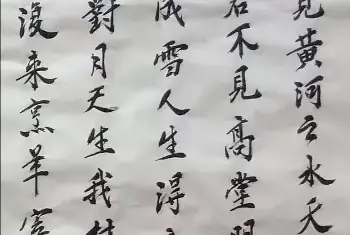 見黃河之水天
君不見高堂明
成雪人生得
對月天生我材
復來烹羊宰